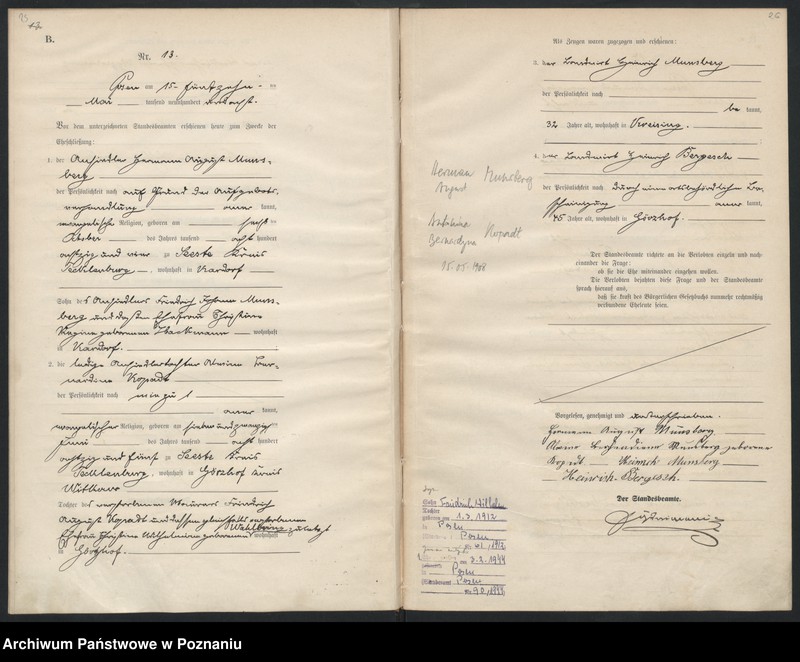 B.
Nr. 13.
Posen am 15. fünfzehn - ten
Mai tausend neunhundert acht.
Vor dem unterzeichneten Standesbeamten erschienen heute zum Zwecke der
Eheschließung:
1. der Ansiedler Hermann August Muns-
berg
der Persönlichkeit nach auf Grund der Aufgebots-
verhandlung aner kannt,
evangelische Religion, geboren am sechsten
Oktober des Jahres tausend acht hundert
achtzig und vier zu Seeste Kreis
Tecklenburg, wohnhaft in
Sohn des Ansiedlers Friedrich Johann Muns-
berg und dessen Ehefrau Christine
Regine geborenen wohnhaft
in
2. die ledige Ansiedlertochter Ber-
nardine Kopadt
der Persönlichkeit nach wie zu 1
aner kannt,
evangelischer Religion, geboren am siebenundzwanzig
Juni des Jahres tausend acht hundert
achtzig und fünf zu Seeste Kreis
Tecklenburg, wohnhaft in Görzhof Kreis
Witkowo
Tochter des verstorbenen Friedrich
August Kopadt und dessen gleichfalls verstorbenen
Ehefrau Christine Wilhelmine geborenen zuletzt wohnhaft
in Görzhof.
26
Als Zeugen waren zugezogen und erschienen:
3. der Landwirt Heinrich Munsberg
der Persönlichkeit nach
be kannt,
32 Jahre alt, wohnhaft in
4. der Landwirt Heinrich Bergesch
der Persönlichkeit nach durch eine ortsbehördliche Be-
scheinigung aner kannt,
45 Jahre alt, wohnhaft in Görzhof.
Herman Munsberg
August
Kopadt
Bernardyna
15.05.1908
Der Standesbeamte richtete an die Verlobten einzeln und nach-
einander die Frage:
ob sie die Ehe miteinander eingehen wollen.
Die Verlobten bejahten diese Frage und der Standesbeamte
sprach hierauf aus,
daß sie kraft des Bürgerlichen Gesetzbuchs nunmehr rechtmäßig
verbundene Eheleute seien.
Vorgelesen, genehmigt und unterschrieben.
Hermann August Münsberg
Bernardiene Munsberg geborene
Kopadt. Heinrich Munsberg
Heinrich Bergesch.
Der Standesbeamte.
Sohn Friedrich Wilhelm
Tochter
geboren am 1.3.1912
in Posen
Posen
am 3.2.1944
Posen
Standesamt Posen
Archiwum Państwowe w Poznaniu